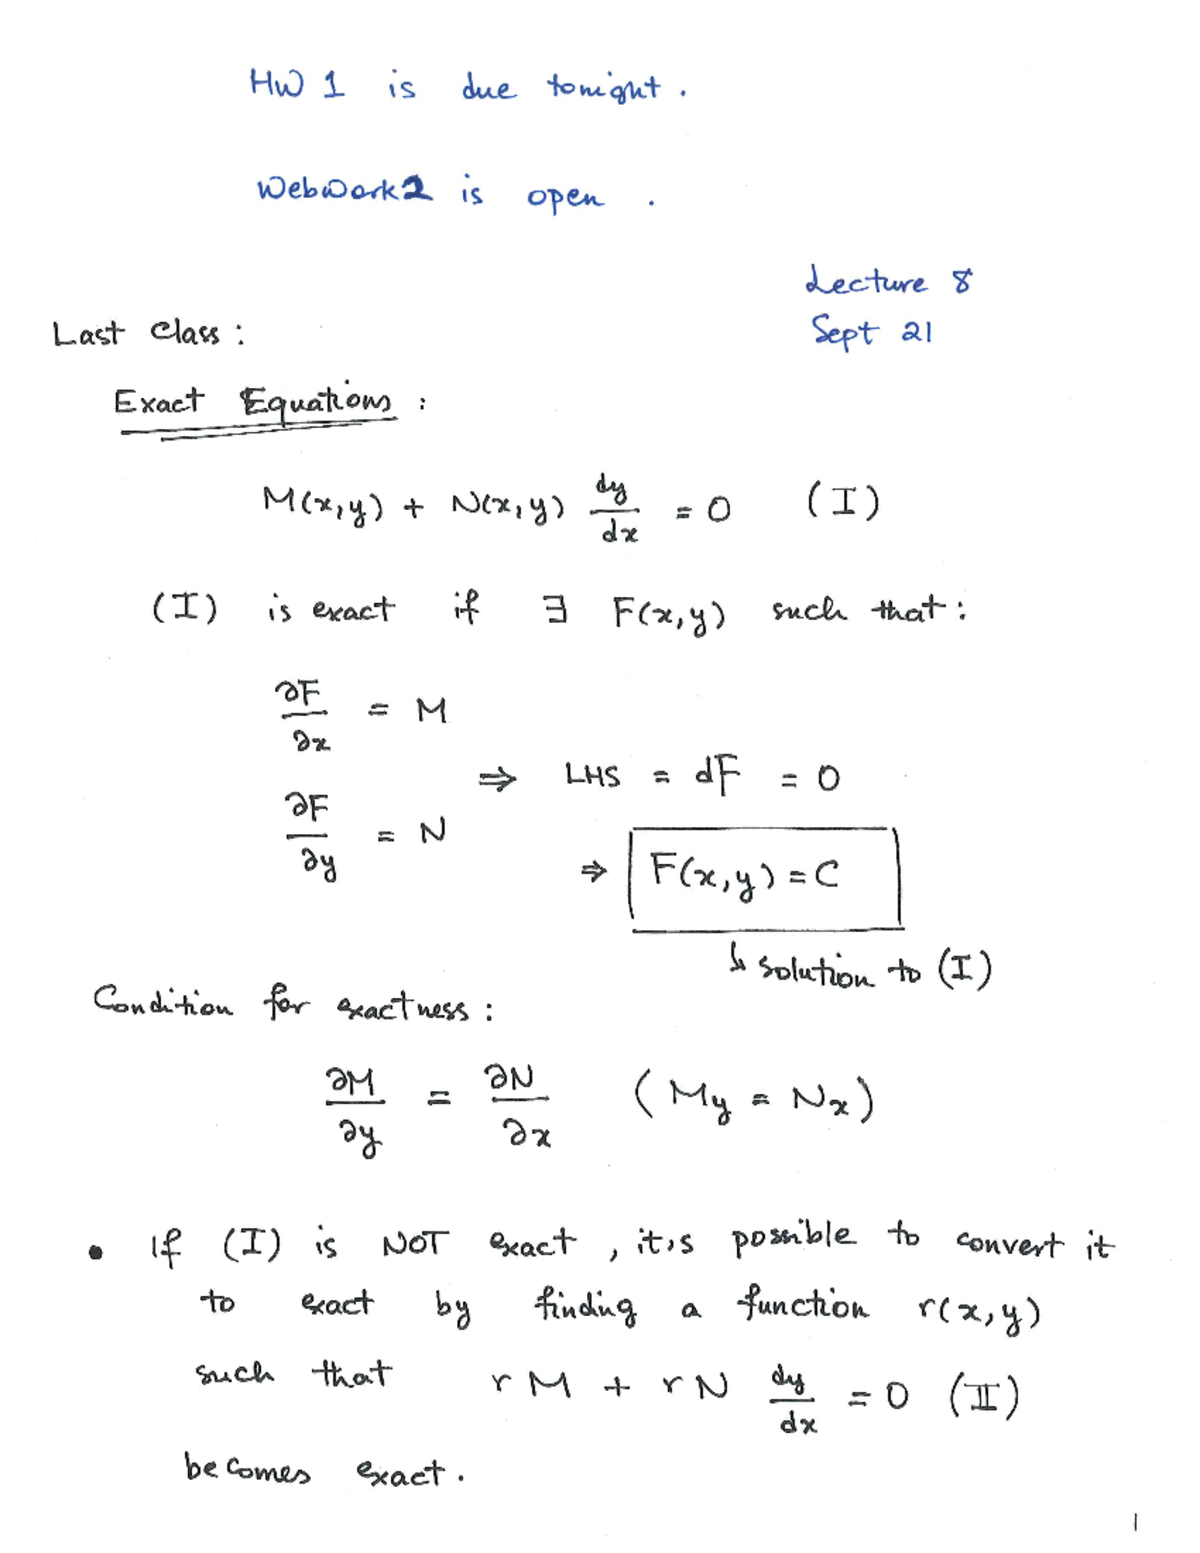 HW 1 is due tonight.
WebWork2 is open .
Lecture 8
Sept 21
Last class :
Exact Equations :
M(x,y) + N(x,y) dy/dx = 0 (I)
(I) is exact if ∃ F(x,y) such that :
∂F/∂x = M
⇒ LHS = dF = 0
∂F/∂y = N
⇒ F(x,y) = C
↳ solution to (I)
Condition for exactness :
∂M/∂y = ∂N/∂x (My = Nx)
• If (I) is NOT exact , it's possible to convert it
to exact by finding a function r(x,y)
such that r M + r N dy/dx = 0 (II)
becomes exact.
1